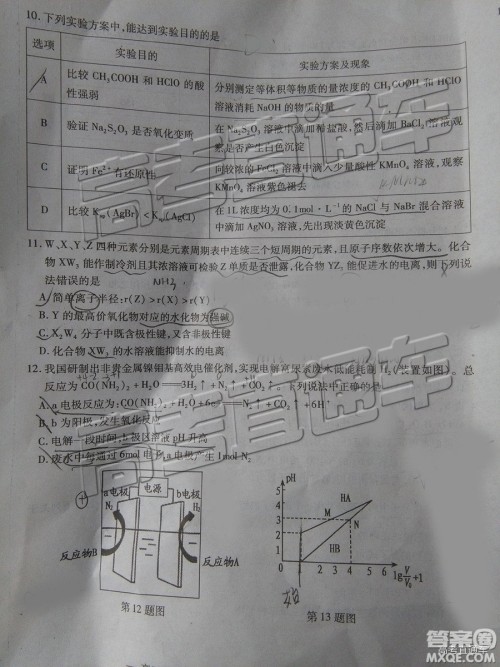 10. 下列实验方案中,能达到实验目的的是
选项 实验目的 实验方案及现象
A 比较 CH₃COOH 和 HClO 的酸性强弱 分别测定等体积等物质的量浓度的 CH₃COOH 和 HClO 溶液消耗 NaOH 的物质的量
B 验证 Na₂S₂O₃ 是否氧化变质 在 Na₂S₂O₃ 溶液中滴加稀盐酸,然后滴加 BaCl₂ 溶液,观察是否产生白色沉淀
C 证明 Fe²⁺ 有还原性 向较浓的 FeCl₂ 溶液中滴入少量酸性 KMnO₄ 溶液,观察 KMnO₄ 溶液紫色褪去
D 比较 Ksp(AgBr)<Ksp(AgCl) 在 1L 浓度均为 0.1mol·L⁻¹ 的 NaCl 与 NaBr 混合溶液中滴入 AgNO₃ 溶液,先出现淡黄色沉淀
11. W、X、Y、Z 四种元素分别是元素周期表中连续三个短周期的元素,且原子序数依次增大。化合
物 XW₃ 能作制冷剂且其浓溶液可检验 Z 单质是否泄露,化合物 YZ₃ 能促进水的电离,则下列说
法错误的是
NH₃
A. 简单离子半径:r(Z)>r(X)>r(Y)
B. Y 的最高价氧化物对应的水化物为强碱
C. X₂W₄ 分子中既含极性键,又含非极性键
D. 化合物 XW₃ 的水溶液能抑制水的电离
12. 我国研制出非贵金属镍钼基高效电催化剂,实现电解富尿素废水低能耗制 H₂(装置如图)。总
反应为 CO(NH₂)₂+H₂O═3H₂↑+N₂↑+CO₂↑。下列说法中正确的是
A. a 电极反应为:CO(NH₂)₂+H₂O+6e⁻═N₂↑+CO₂↑+6H⁺
B. b 为阳极,发生氧化反应
C. 电解一段时间,b 极区溶液 pH 升高
D. 废水中每通过 6mol 电子,a 电极产生 1mol N₂
a电极 电源 b电极
N₂ H₂
反应物B 反应物A
第12题图
pH
5
4
3
2
1
0 1 2 3 4 5 6
HA
M
N
HB
lg V/V₀ +1
第13题图
高考直通车
高考直通车
答案圈